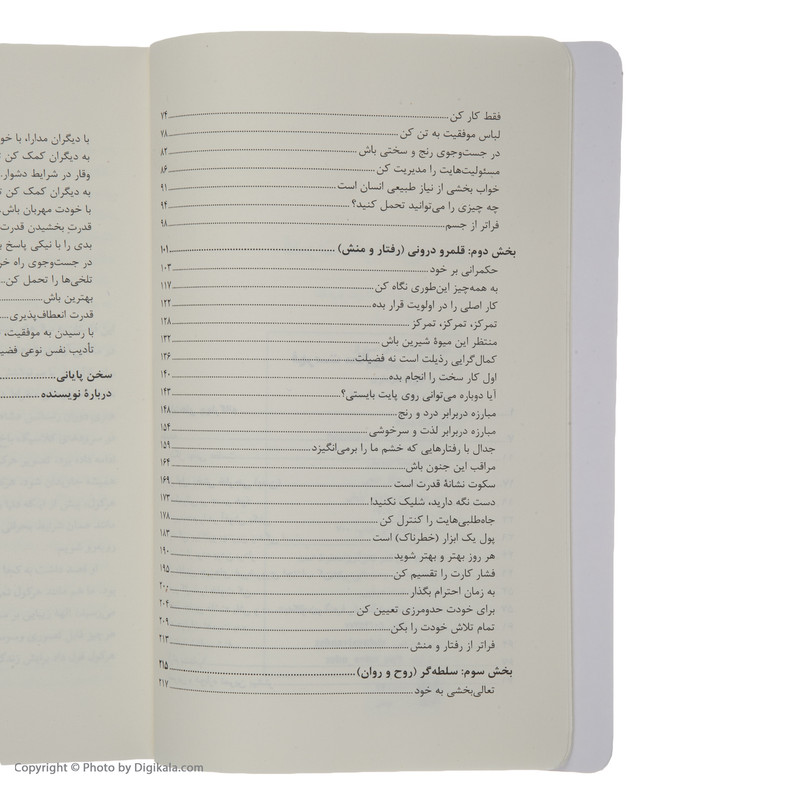 فقط کار کن ۷۴
لباس موفقیت به تن کن ۷۸
در جست‌وجوی رنج و سختی باش ۸۲
مسئولیت‌هایت را مدیریت کن ۸۶
خواب بخشی از نیاز طبیعی انسان است ۹۱
چه چیزی را می‌توانید تحمل کنید؟ ۹۴
فراتر از جسم ۹۸
بخش دوم: قلمرو درونی (رفتار و منش) ۱۰۱
حکمرانی بر خود ۱۰۳
به همه‌چیز این‌طوری نگاه کن ۱۱۷
کار اصلی را در اولویت قرار بده ۱۲۲
تمرکز، تمرکز، تمرکز ۱۲۸
منتظر این میوهٔ شیرین باش ۱۳۲
کمال‌گرایی رذیلت است نه فضیلت ۱۳۶
اول کار سخت را انجام بده ۱۴۰
آیا دوباره می‌توانی روی پایت بایستی؟ ۱۴۳
مبارزه دربرابر درد و رنج ۱۴۸
مبارزه دربرابر لذت و سرخوشی ۱۵۴
جدال با رفتارهایی که خشم ما را برمی‌انگیزد ۱۵۹
مراقب این جنون باش ۱۶۴
سکوت نشانهٔ قدرت است ۱۶۹
دست نگه دارید، شلیک نکنید! ۱۷۳
جاه‌طلبی‌هایت را کنترل کن ۱۷۸
پول یک ابزار (خطرناک) است ۱۸۳
هر روز بهتر و بهتر شوید ۱۹۰
فشار کارت را تقسیم کن ۱۹۵
به زمان احترام بگذار ۲۰۰
برای خودت حدومرزی تعیین کن ۲۰۴
تمام تلاش خودت را بکن ۲۰۹
فراتر از رفتار و منش ۲۱۳
بخش سوم: سلطه‌گر (روح و روان) ۲۱۵
تعالی‌بخشی به خود ۲۱۷
با دیگران مدارا، با
به دیگران کمک کن
وقار در شرایط دشوار
به دیگران کمک کن
با خودت مهربان باش
قدرت بخشیدن قدرت
بدی را با نیکی پاسخ
در جست‌وجوی راه
تلخی‌ها را تحمل کن
بهترین باش
قدرت انعطاف‌پذیری
با رسیدن به موفقیت،
تأدیب نفس نوعی
سخن پایانی
دربارهٔ نویسنده
Copyright © Photo by Digikala.com